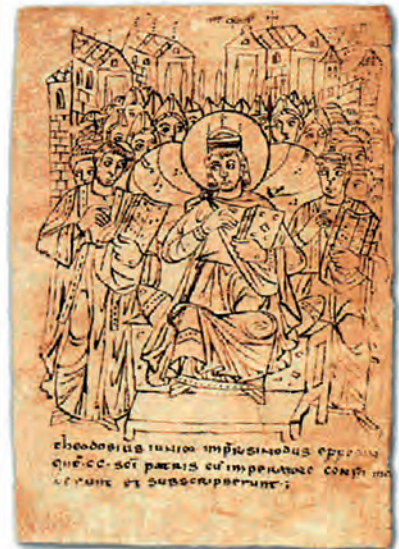 theodosius iunior imp̄r sinodus
que·CC·sc̄i patris cū imperatore
uerunt et subscripserunt;